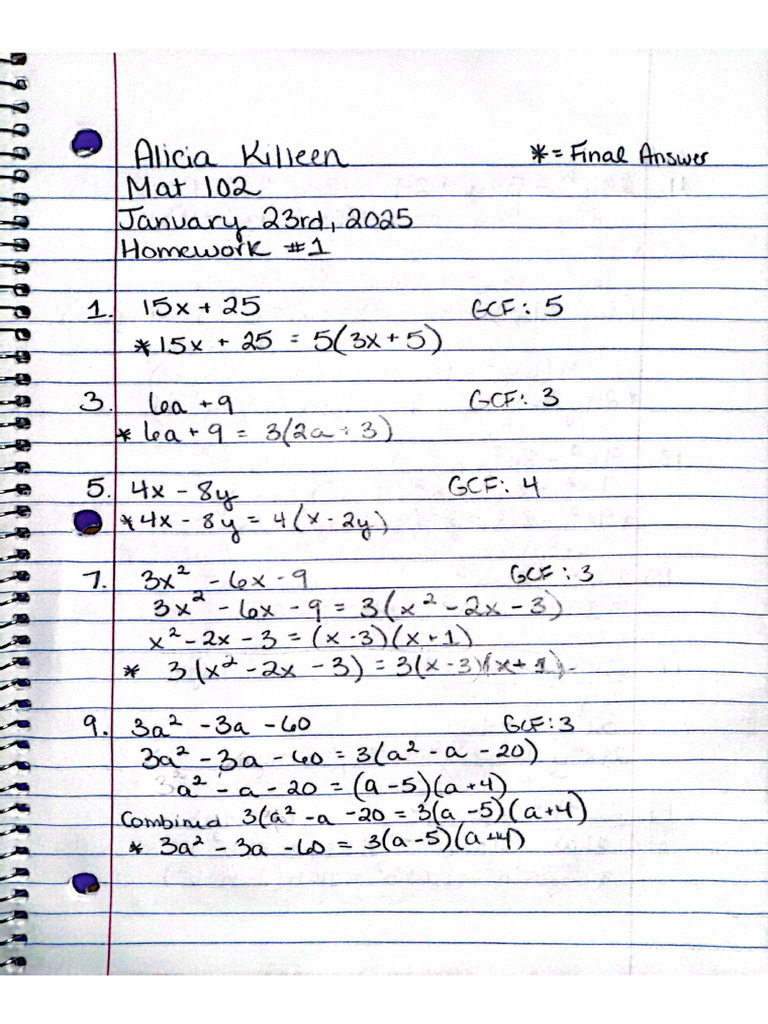 Alicia Killeen *= Final Answer
Mat 102
January 23rd, 2025
Homework #1
1. 15x + 25 GCF: 5
*15x + 25 = 5(3x + 5)
3. 6a + 9 GCF: 3
* 6a + 9 = 3(2a + 3)
5. 4x - 8y GCF: 4
*4x - 8y = 4(x - 2y)
7. 3x² - 6x - 9 GCF: 3
3x² - 6x - 9 = 3(x² - 2x - 3)
x² - 2x - 3 = (x - 3)(x + 1)
* 3(x² - 2x - 3) = 3(x - 3)(x + 1)
9. 3a² - 3a - 60 GCF: 3
3a² - 3a - 60 = 3(a² - a - 20)
a² - a - 20 = (a - 5)(a + 4)
Combined 3(a² - a - 20 = 3(a - 5)(a + 4)
* 3a² - 3a - 60 = 3(a - 5)(a + 4)